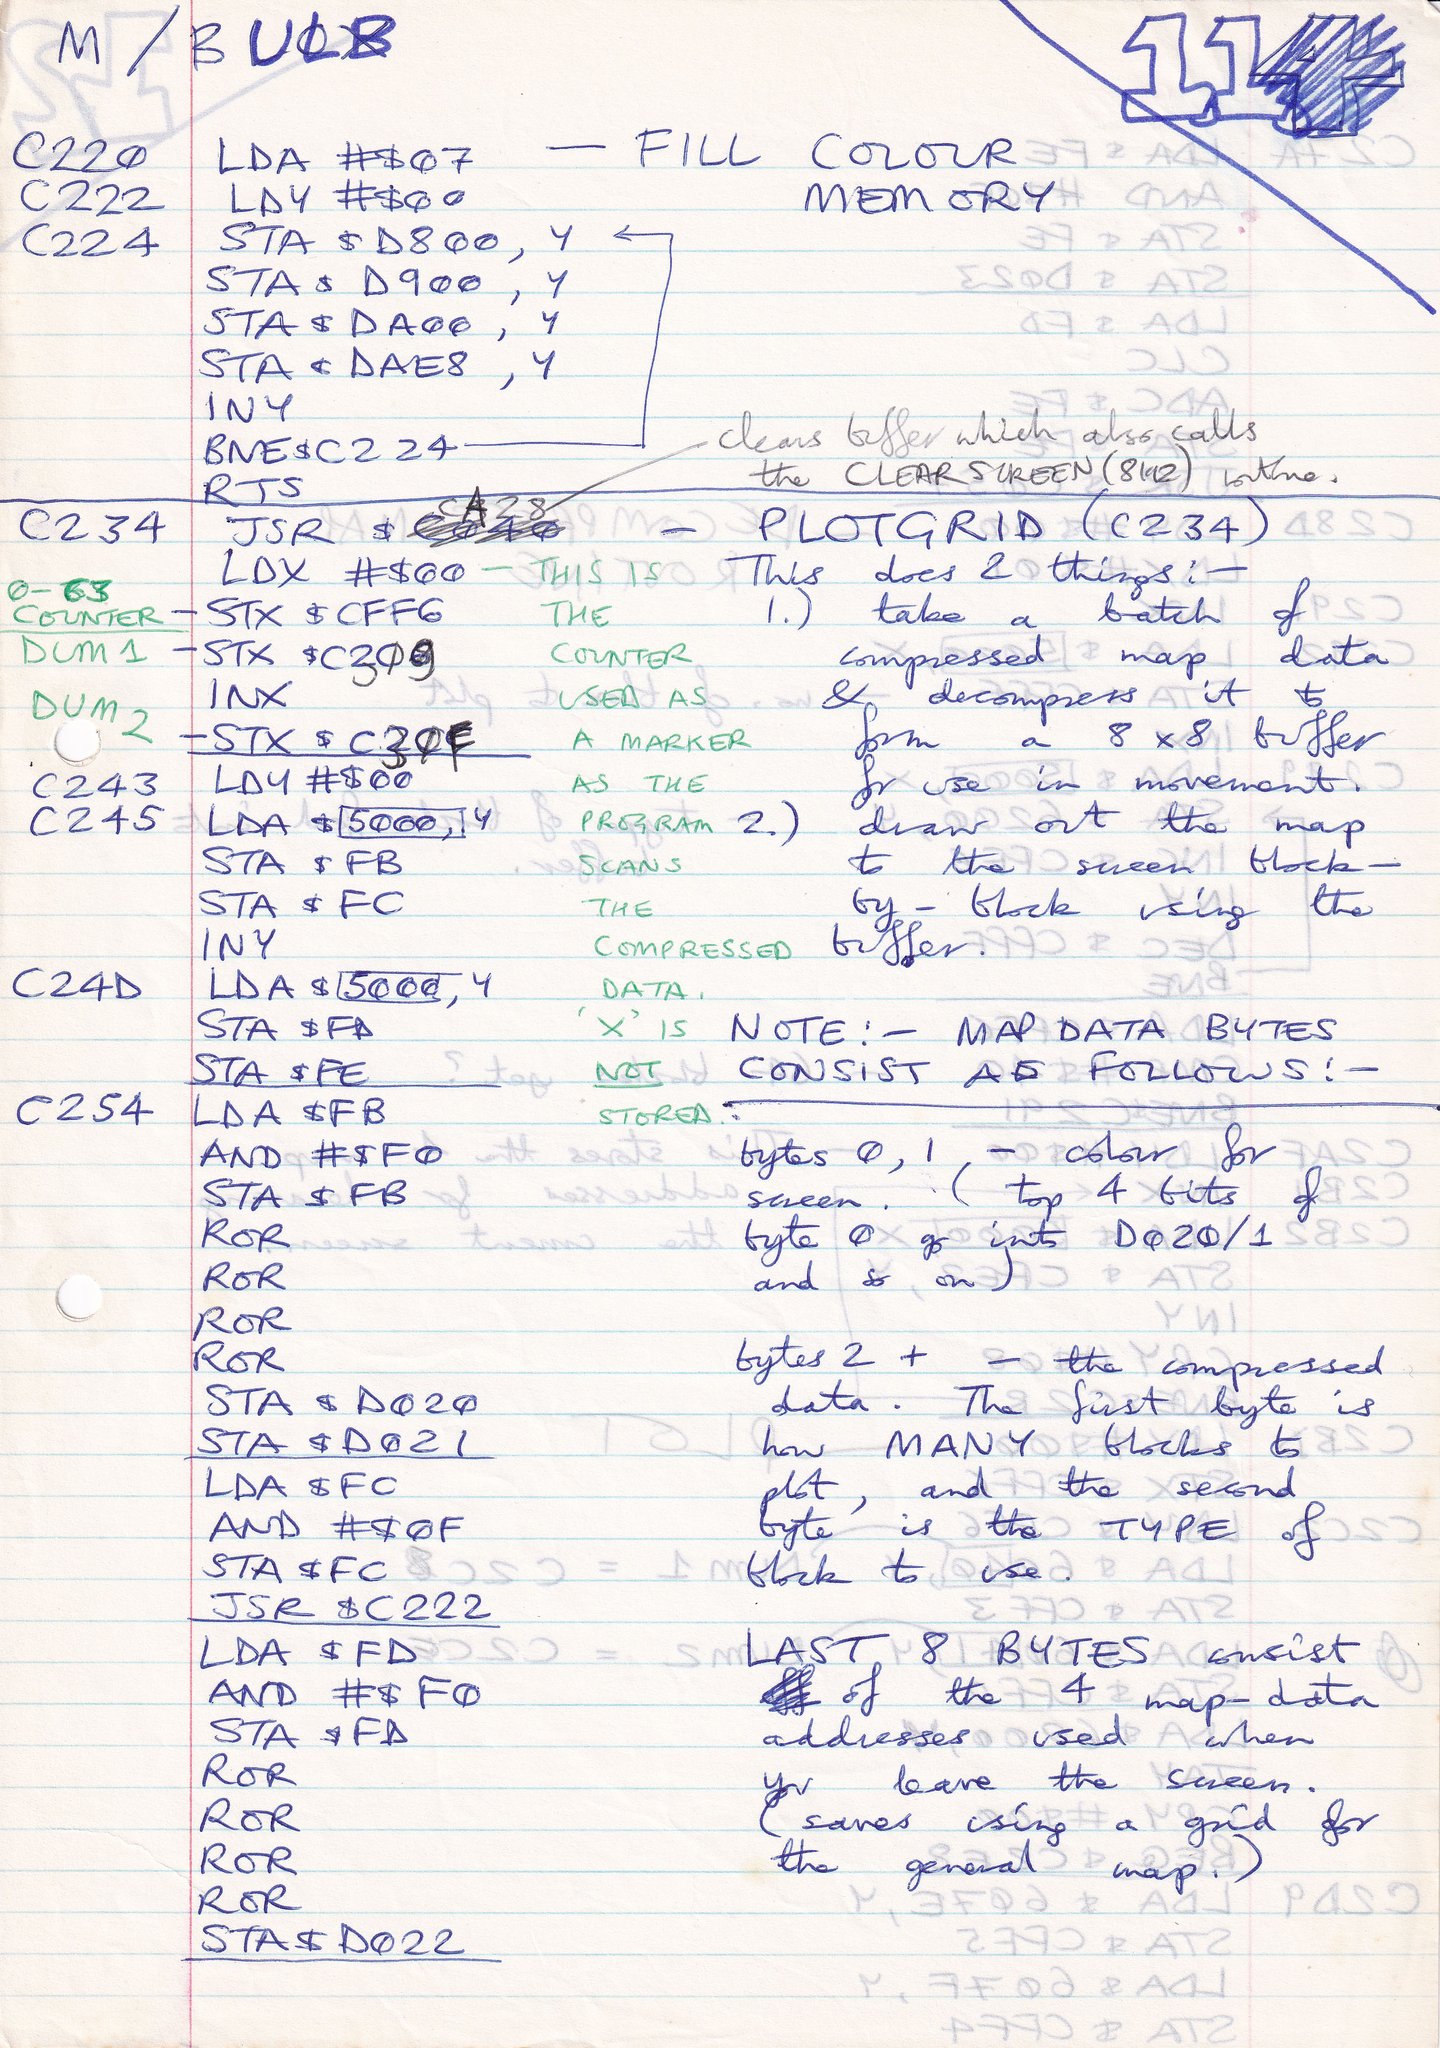 M/BULB
11
C220 LDA #$07 — FILL COLOUR
C222 LDY #$00 MEMORY
C224 STA $D800,Y
STA $D900,Y
STA $DA00,Y
STA $DAE8,Y
INY
BNE $C224
clears buffer which also calls
RTS
the CLEARSCREEN (8k2) routine.
C234 JSR $CA28 — PLOTGRID (C234)
LDX #$00 — THIS IS This does 2 things:—
0-63
COUNTER — STX $CFF6 THE 1.) take a batch of
DUM1 — STX $C309 COUNTER compressed map data
INX USED AS & decompress it to
DUM2 — STX $C30F A MARKER form a 8x8 buffer
C243 LDY #$00 AS THE for use in movement.
C245 LDA $5000,Y PROGRAM 2.) draw out the map
STA $FB SCANS to the screen block—
STA $FC THE by—block using the
INY COMPRESSED buffer.
C24D LDA $5000,Y DATA.
STA $FD 'X' IS NOTE:— MAP DATA BYTES
STA $FE NOT CONSIST AS FOLLOWS:—
C254 LDA $FB STORED.
AND #$F0 bytes 0,1 — colour for
STA $FB screen. (top 4 bits of
ROR byte 0 go into D020/1
ROR and so on)
ROR
ROR bytes 2+ — the compressed
STA $D020 data. The first byte is
STA $D021 how MANY blocks to
LDA $FC plot, and the second
AND #$0F byte is the TYPE of
STA $FC block to use.
JSR $C222
LDA $FD LAST 8 BYTES consist
AND #$F0 of the 4 map-data
STA $FD addresses used when
ROR you leave the screen.
ROR (saves using a grid for
ROR the general map.)
ROR
STA $D022